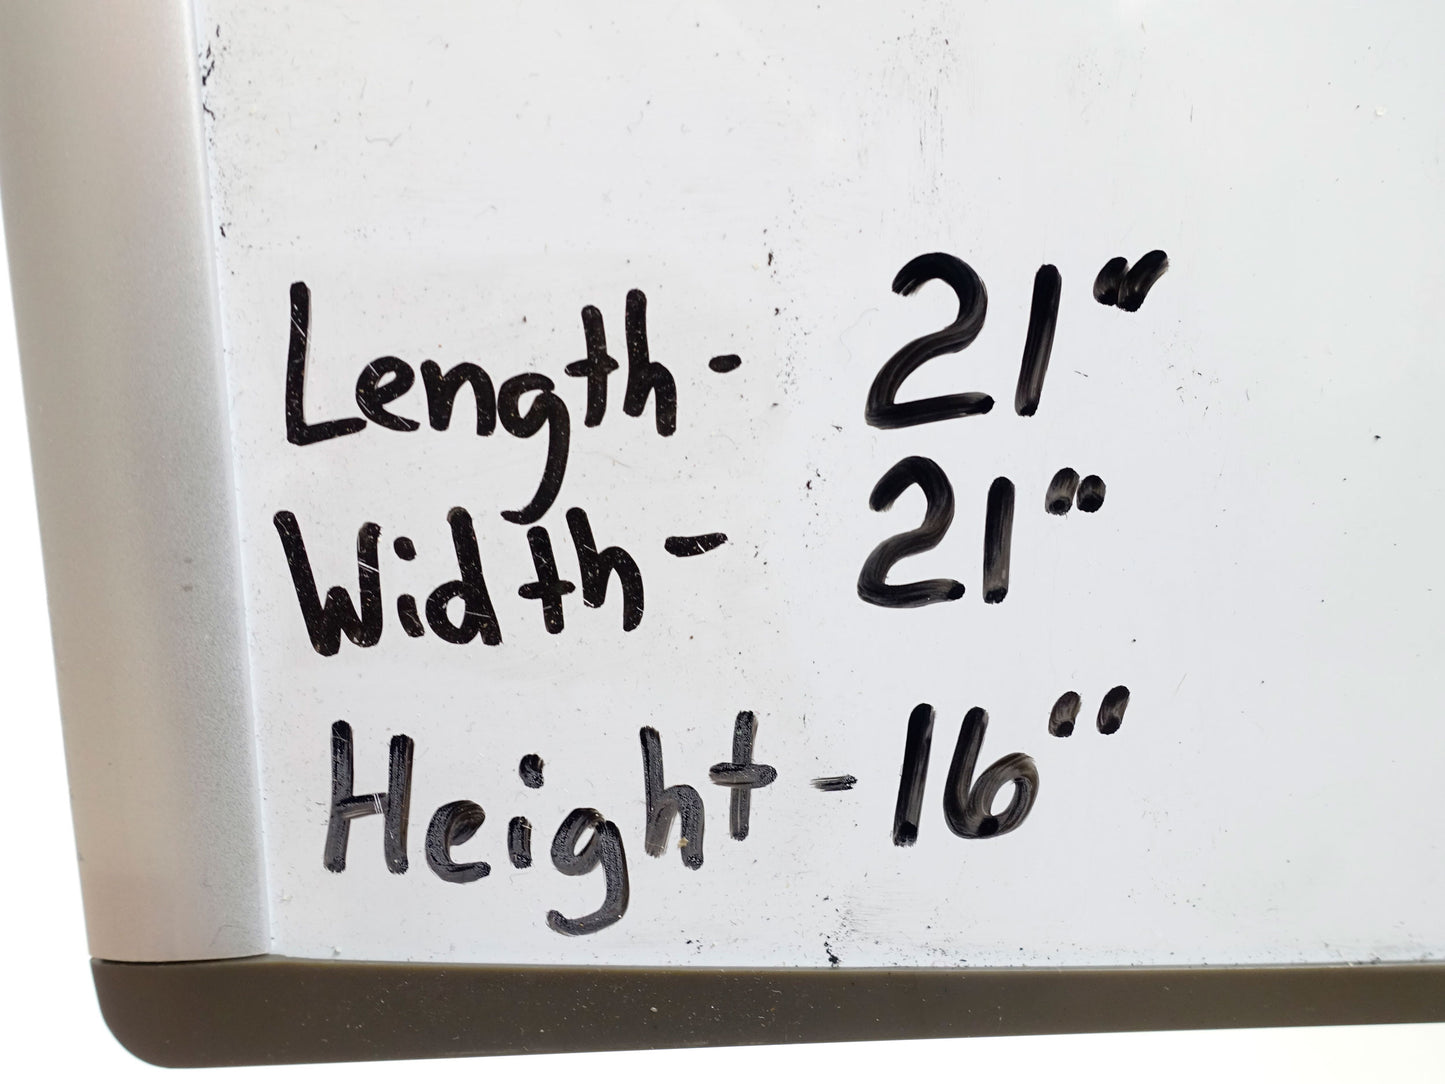 Length - 21"
Width - 21"
Height - 16"